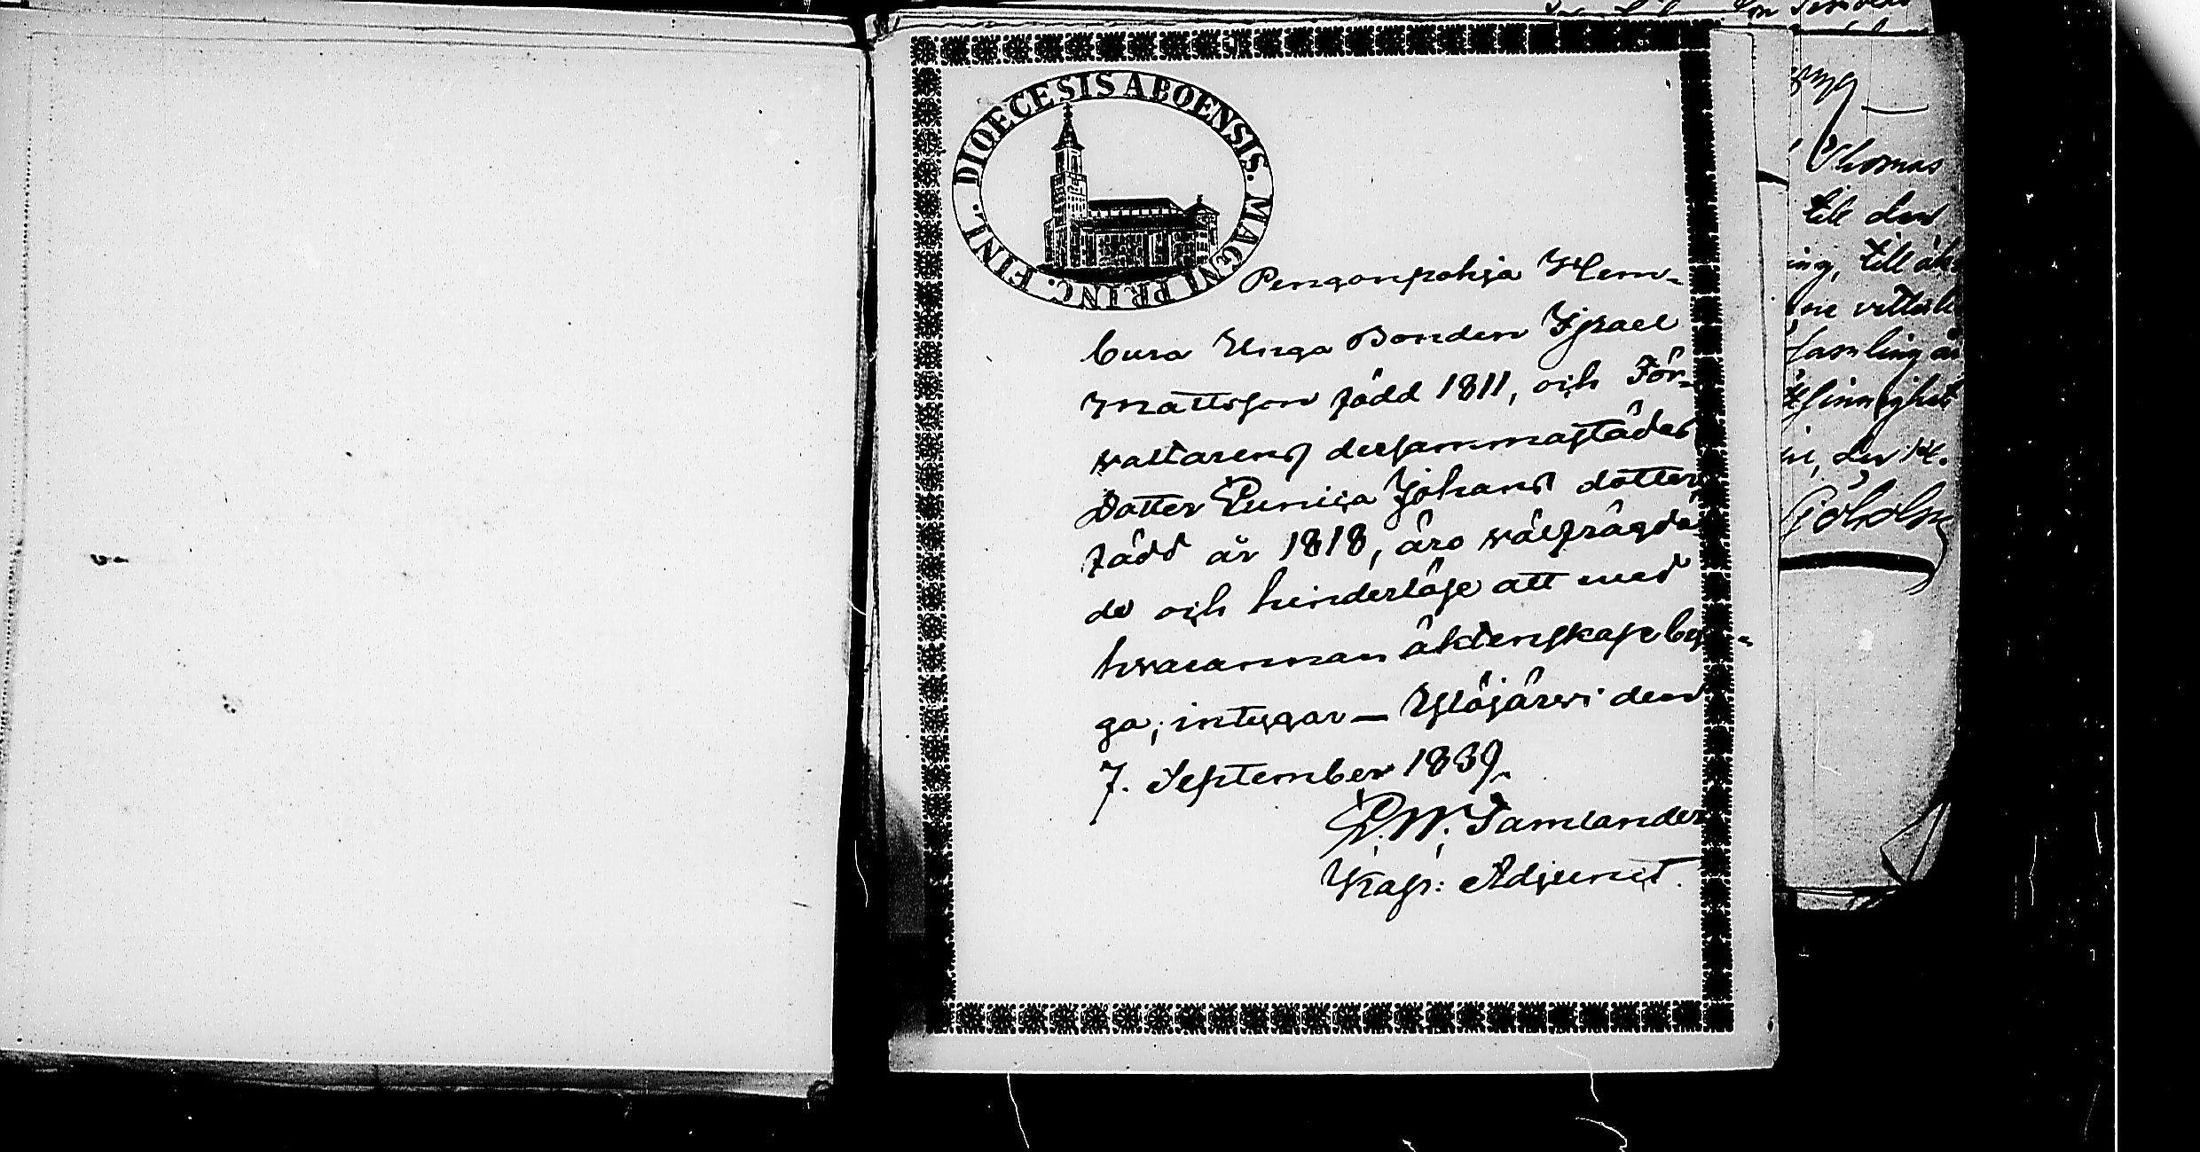 DIOECESIS ABOENSIS. MAGNI PRINC. FINL.
Pengonpohja Hem-
bura Unga Bonden Isrаel
Mattsson född 1811, och För-
valtarens dersammastädes
Dotter Eunica Johans dotter
född år 1818, äro välfrägda
de och hinderlöse att med
hvarannan äktenskap be
ga, intygar — Ylöjärvi den
7. September 1839.
W. Tamlander
Kap: Adjunct.
Thomas
till den
ing, till äk
ne
samling är